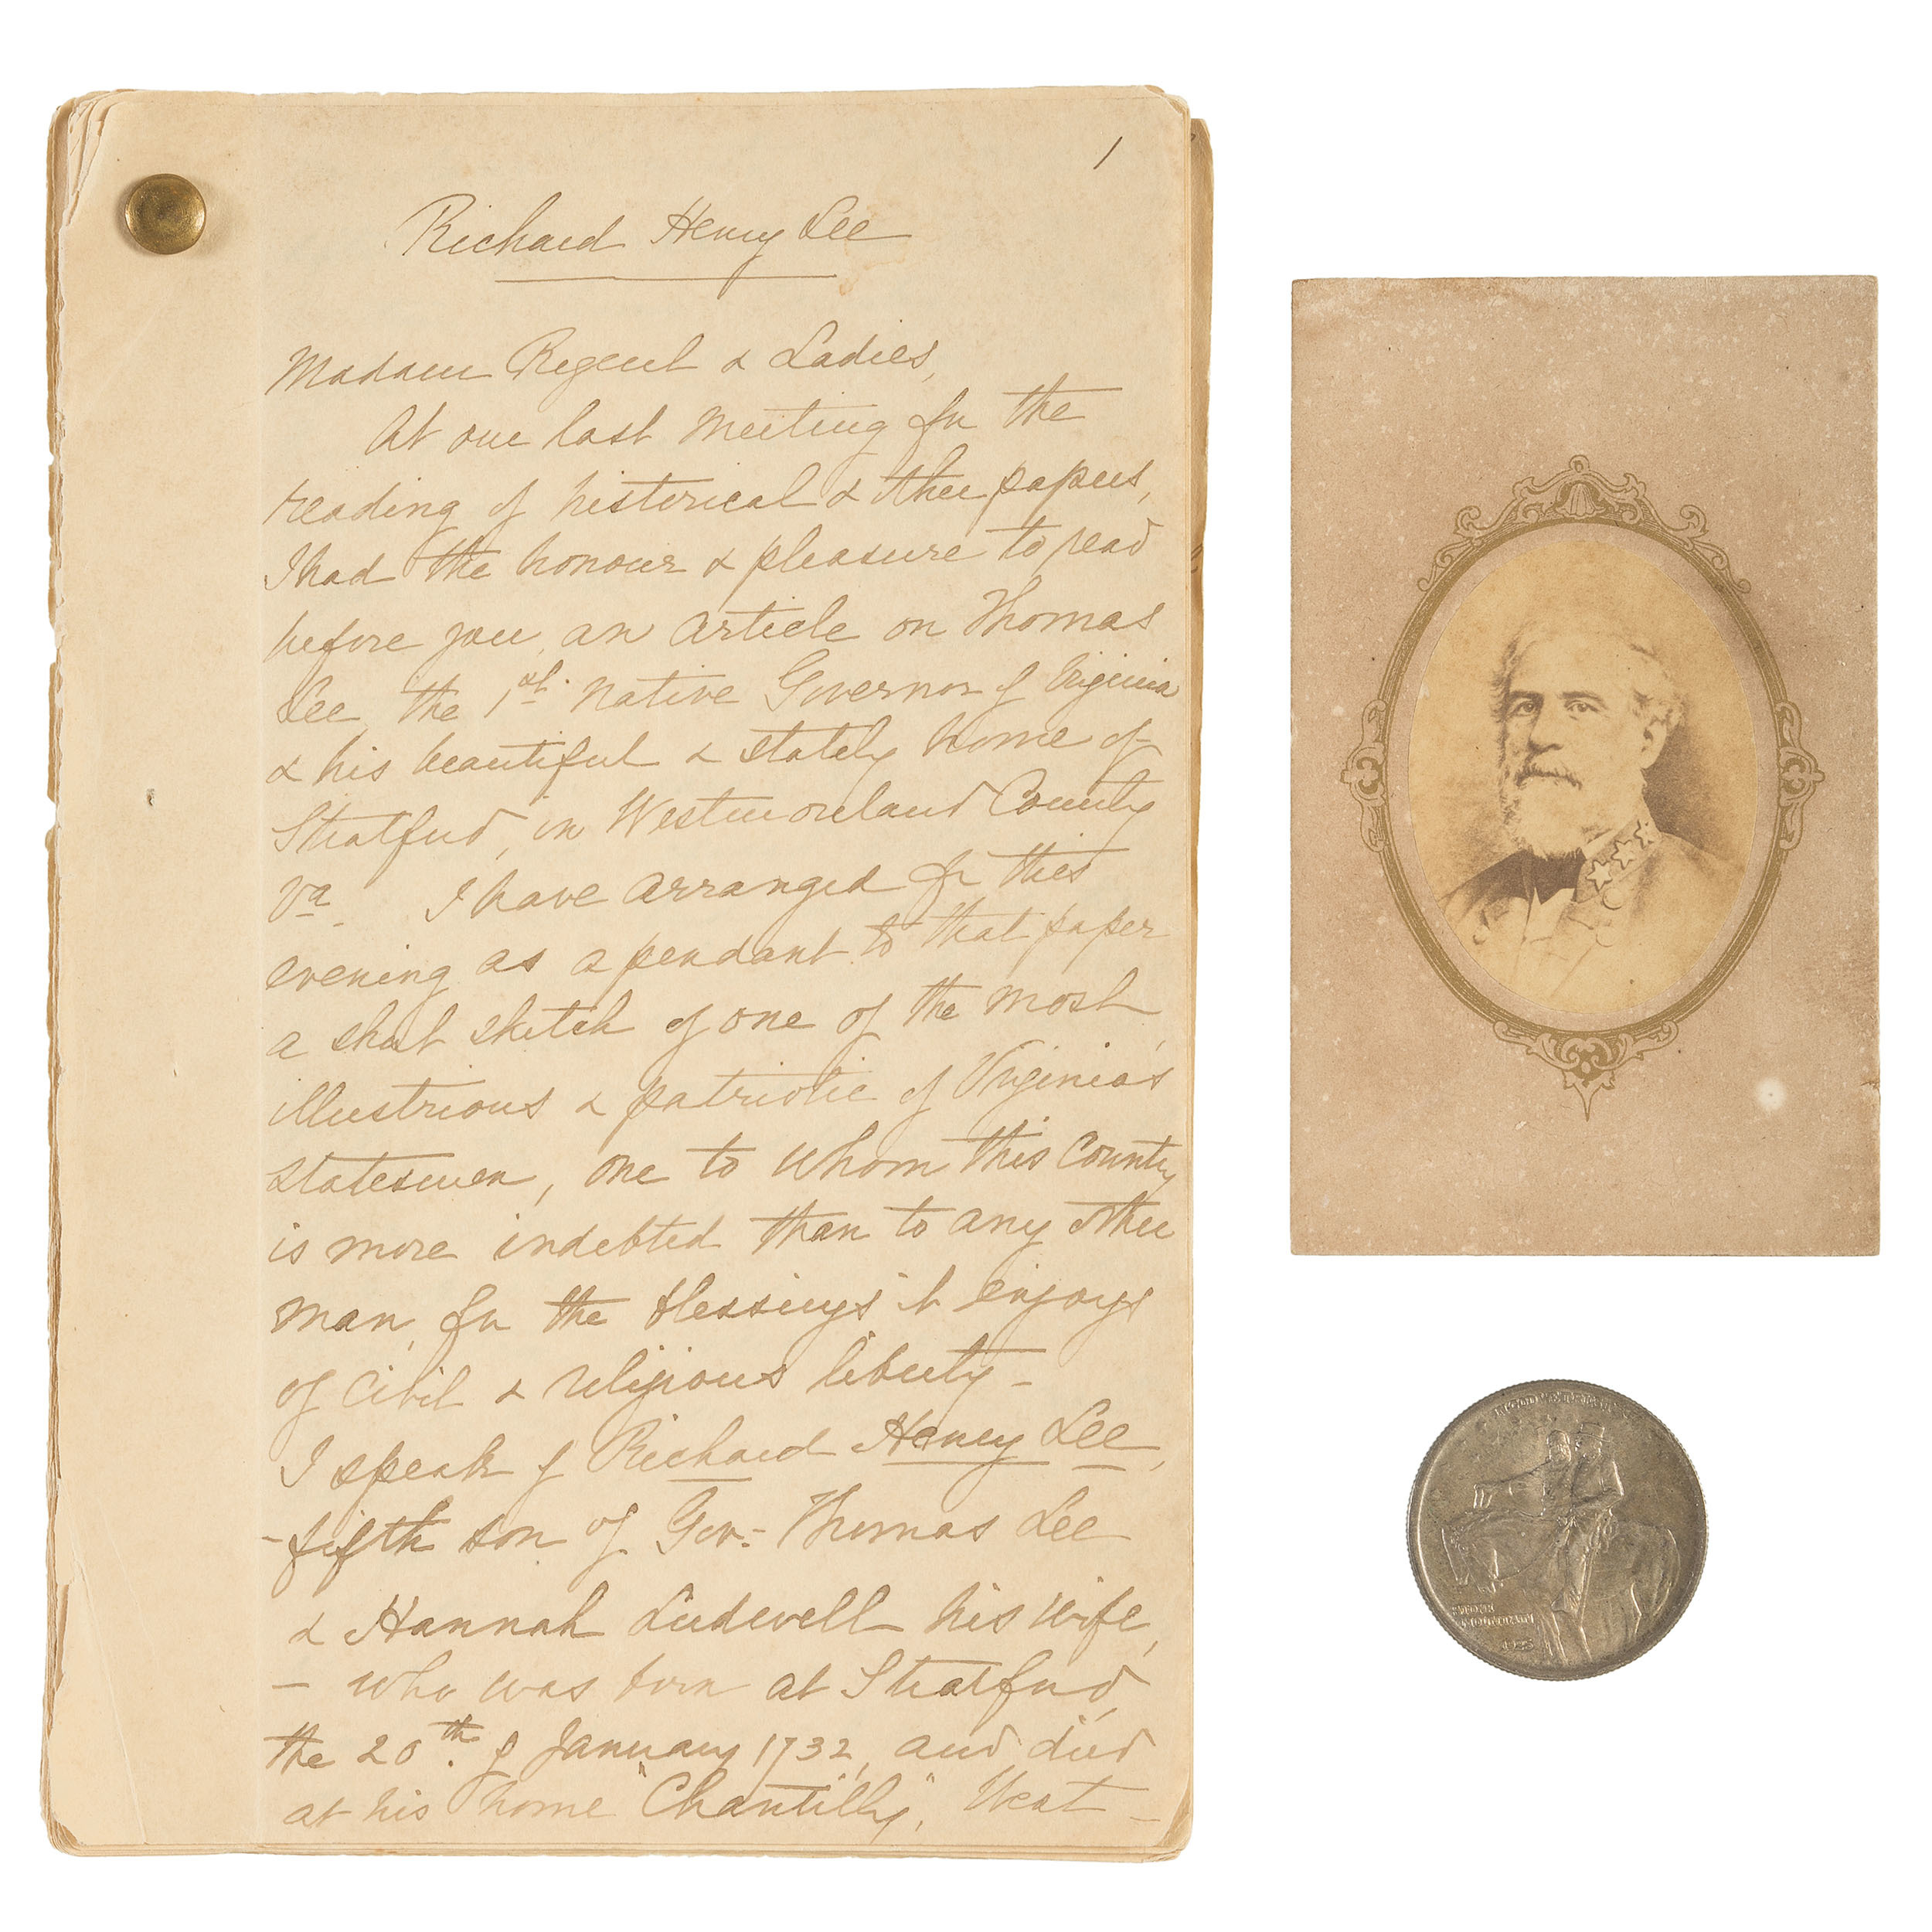 1
Richard Henry Lee
Madam Regent & Ladies,
At our last meeting for the
reading of historical & other papers,
I had the honour & pleasure to read
before you, an article on Thomas
Lee, the 1st native Governor of Virginia
& his beautiful & stately home of
Stratford, in Westmoreland County
Va. I have arranged for this
evening as a pendant to that paper
a short sketch of one of the most
illustrious & patriotic of Virginia's
statesmen, one to whom this Country
is more indebted than to any other
man, for the blessings it enjoys
of civil & religious liberty -
I speak of Richard Henry Lee,
- fifth son of Gov:- Thomas Lee
& Hannah Ludwell his wife,
- who was born at Stratford,
the 20th. of January 1732, and died
at his home "Chantilly", West -
STONE
MOUNTAIN
1925